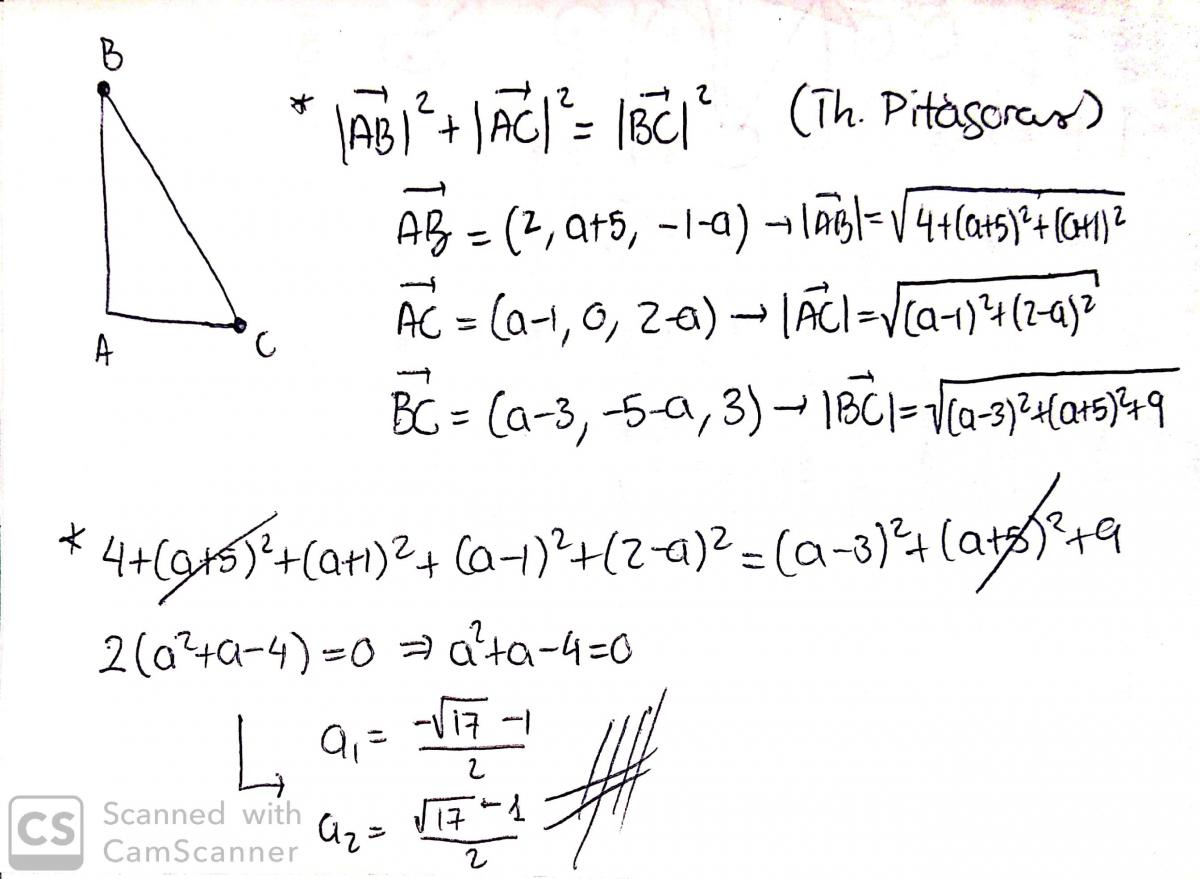 B
* |AB|² + |AC|² = |BC|² (Th. Pitàgoras)
AB = (2, a+5, -1-a) → |AB| = √4+(a+5)²+(a+1)²
AC = (a-1, 0, 2-a) → |AC| = √(a-1)²+(2-a)²
A C
BC = (a-3, -5-a, 3) → |BC| = √(a-3)²+(a+5)²+9
* 4+(a+5)²+(a+1)²+(a-1)²+(2-a)² = (a-3)²+(a+5)²+9
2(a²+a-4)=0 ⇒ a²+a-4=0
a₁ = -√17 -1 / 2
a₂ = √17 -1 / 2
CS Scanned with CamScanner